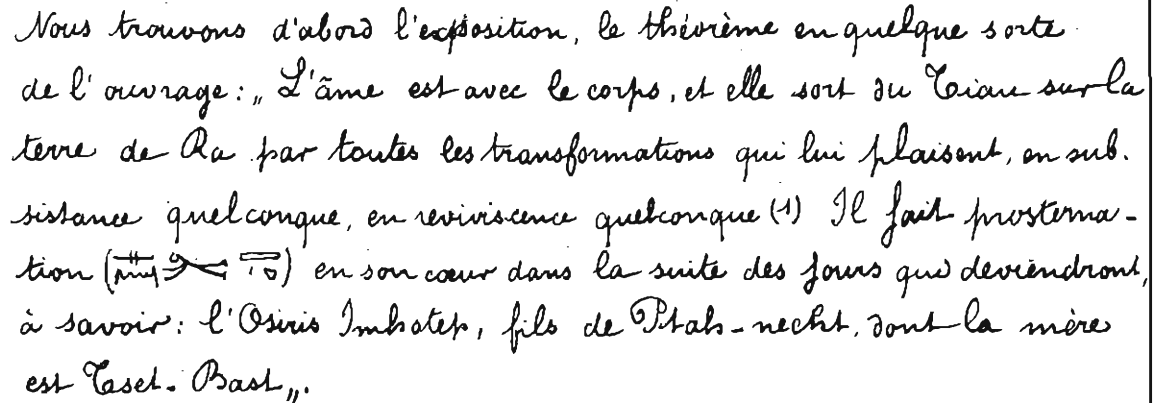 Nous trouvons d'abord l'exposition, le théorème en quelque sorte
de l'ouvrage: „ L'âme est avec le corps, et elle sort du Tiau sur la
terre de Ra par toutes les transformations qui lui plaisent, en sub-
sistance quelconque, en reviviscence quelconque (1) Il fait prosterna-
tion () en son cœur dans la suite des jours qui deviendront,
à savoir: l'Osiris Imhotep, fils de Ptah-necht, dont la mère
est Taset-Bast„.